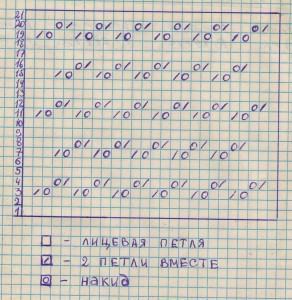 21
20 0/ 0/ 0/ 0/ 0/ 0/
19 /0 /0 /0 /0 /0 /0
18
17
16 0/ 0/ 0/ 0/ 0/
15 /0 /0 /0 /0 /0
14
13
12 0/ 0/ 0/ 0/ 0/ 0/
11 /0 /0 /0 /0 /0 /0
10
9
8 0/ 0/ 0/ 0/ 0/
7 /0 /0 /0 /0 /0
6
5
4 0/ 0/ 0/ 0/ 0/ 0/
3 /0 /0 /0 /0 /0 /0
2
1
- ЛИЦЕВАЯ ПЕТЛЯ
- 2 ПЕТЛИ ВМЕСТЕ
- НАКИД